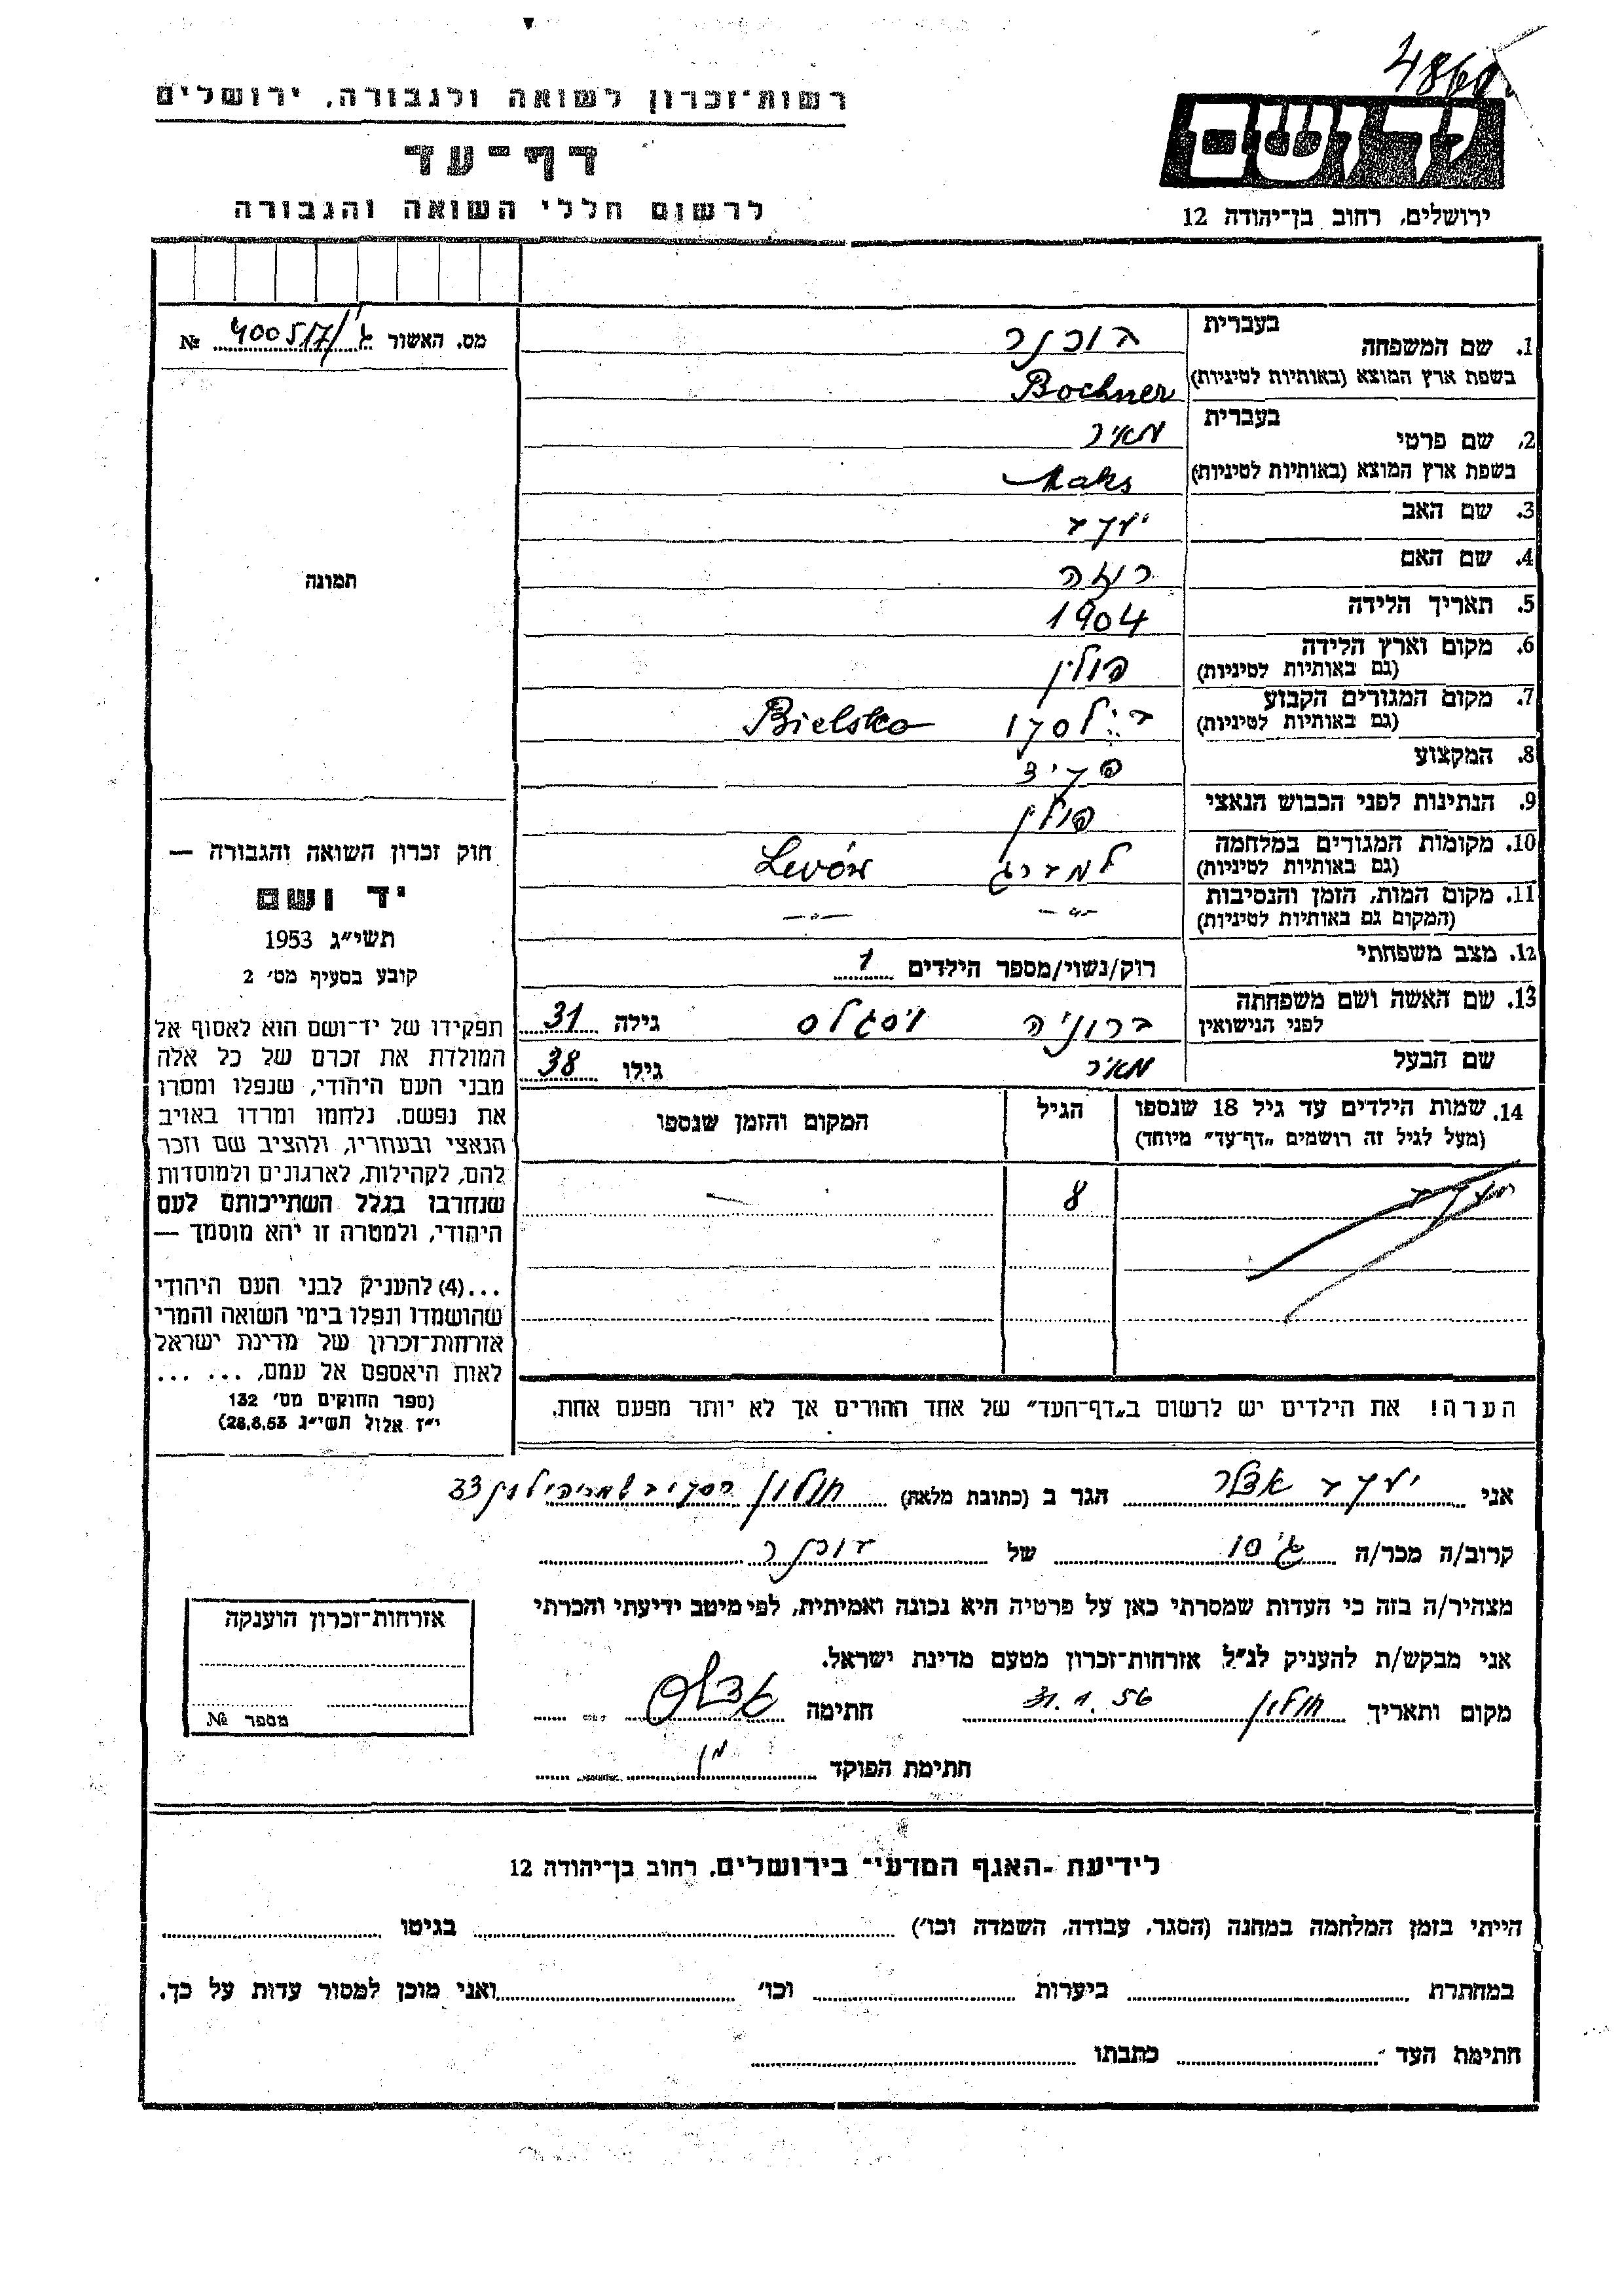 רשות־זכרון לשואה ולגבורה, ירושלים
דף־עד
לרשום חללי השואה והגבורה
יד ושם
ירושלים, רחוב בן־יהודה 12
מס. האשור 400517/ג' №
תמונה
חוק זכרון השואה והגבורה —
יד ושם
תשי״ג 1953
קובע בסעיף מס׳ 2
תפקידו של יד־ושם הוא לאסוף אל
המולדת את זכרם של כל אלה
מבני העם היהודי, שנפלו ומסרו
את נפשם, נלחמו ומרדו באויב
הנאצי ובעוזריו, ולהציב שם וזכר
להם, לקהילות, לארגונים ולמוסדות
שנחרבו בגלל השתייכותם לעם
היהודי, ולמטרה זו יהא מוסמך —
...(4) להעניק לבני העם היהודי
שהושמדו ונפלו בימי השואה והמרי
אזרחות־זכרון של מדינת ישראל
לאות היאספם אל עמם, ... ...
(ספר החוקים מס׳ 132
י״ז אלול תשי״ג 28.8.53)
1. שם המשפחה בעברית בוכנר
בשפת ארץ המוצא (באותיות לטיניות) Bochner
2. שם פרטי בעברית מאיר
בשפת ארץ המוצא (באותיות לטיניות) Maks
3. שם האב יעקב
4. שם האם רוזה
5. תאריך הלידה 1904
6. מקום וארץ הלידה (גם באותיות לטיניות) פולין
7. מקום המגורים הקבוע (גם באותיות לטיניות) בילסקו Bielsko
8. המקצוע פקיד
9. הנתינות לפני הכבוש הנאצי פולין
10. מקומות המגורים במלחמה (גם באותיות לטיניות) למברג Lwów
11. מקום המות, הזמן והנסיבות (המקום גם באותיות לטיניות) —"— —"—
12. מצב משפחתי רוק/נשוי/מספר הילדים 1
13. שם האשה ושם משפחתה לפני הנישואין ברוניה גילה 31
שם הבעל מאיר גילו 38
14. שמות הילדים עד גיל 18 שנספו הגיל המקום והזמן שנספו
(מעל לגיל זה רושמים „דף־עד״ מיוחד)
יעקב 8 —
הערה! את הילדים יש לרשום ב„דף־העד״ של אחד ההורים אך לא יותר מפעם אחת.
אני יעקב הגר ב (כתובת מלאה) חולון 33
קרוב/ה מכר/ה גיס של בוכנר
מצהיר/ה בזה כי העדות שמסרתי כאן על פרטיה היא נכונה ואמיתית, לפי מיטב ידיעתי והכרתי
אני מבקש/ת להעניק לנ״ל אזרחות־זכרון מטעם מדינת ישראל.
מקום ותאריך חולון 31.1.56 חתימה
חתימת הפוקד
אזרחות־זכרון הוענקה
מספר №
לידיעת ״האגף המדעי״ בירושלים, רחוב בן־יהודה 12
הייתי בזמן המלחמה במחנה (הסגר, עבודה, השמדה וכו׳) בגיטו
במחתרת ביערות וכו׳ ואני מוכן למסור עדות על כך.
חתימת העד כתבתו